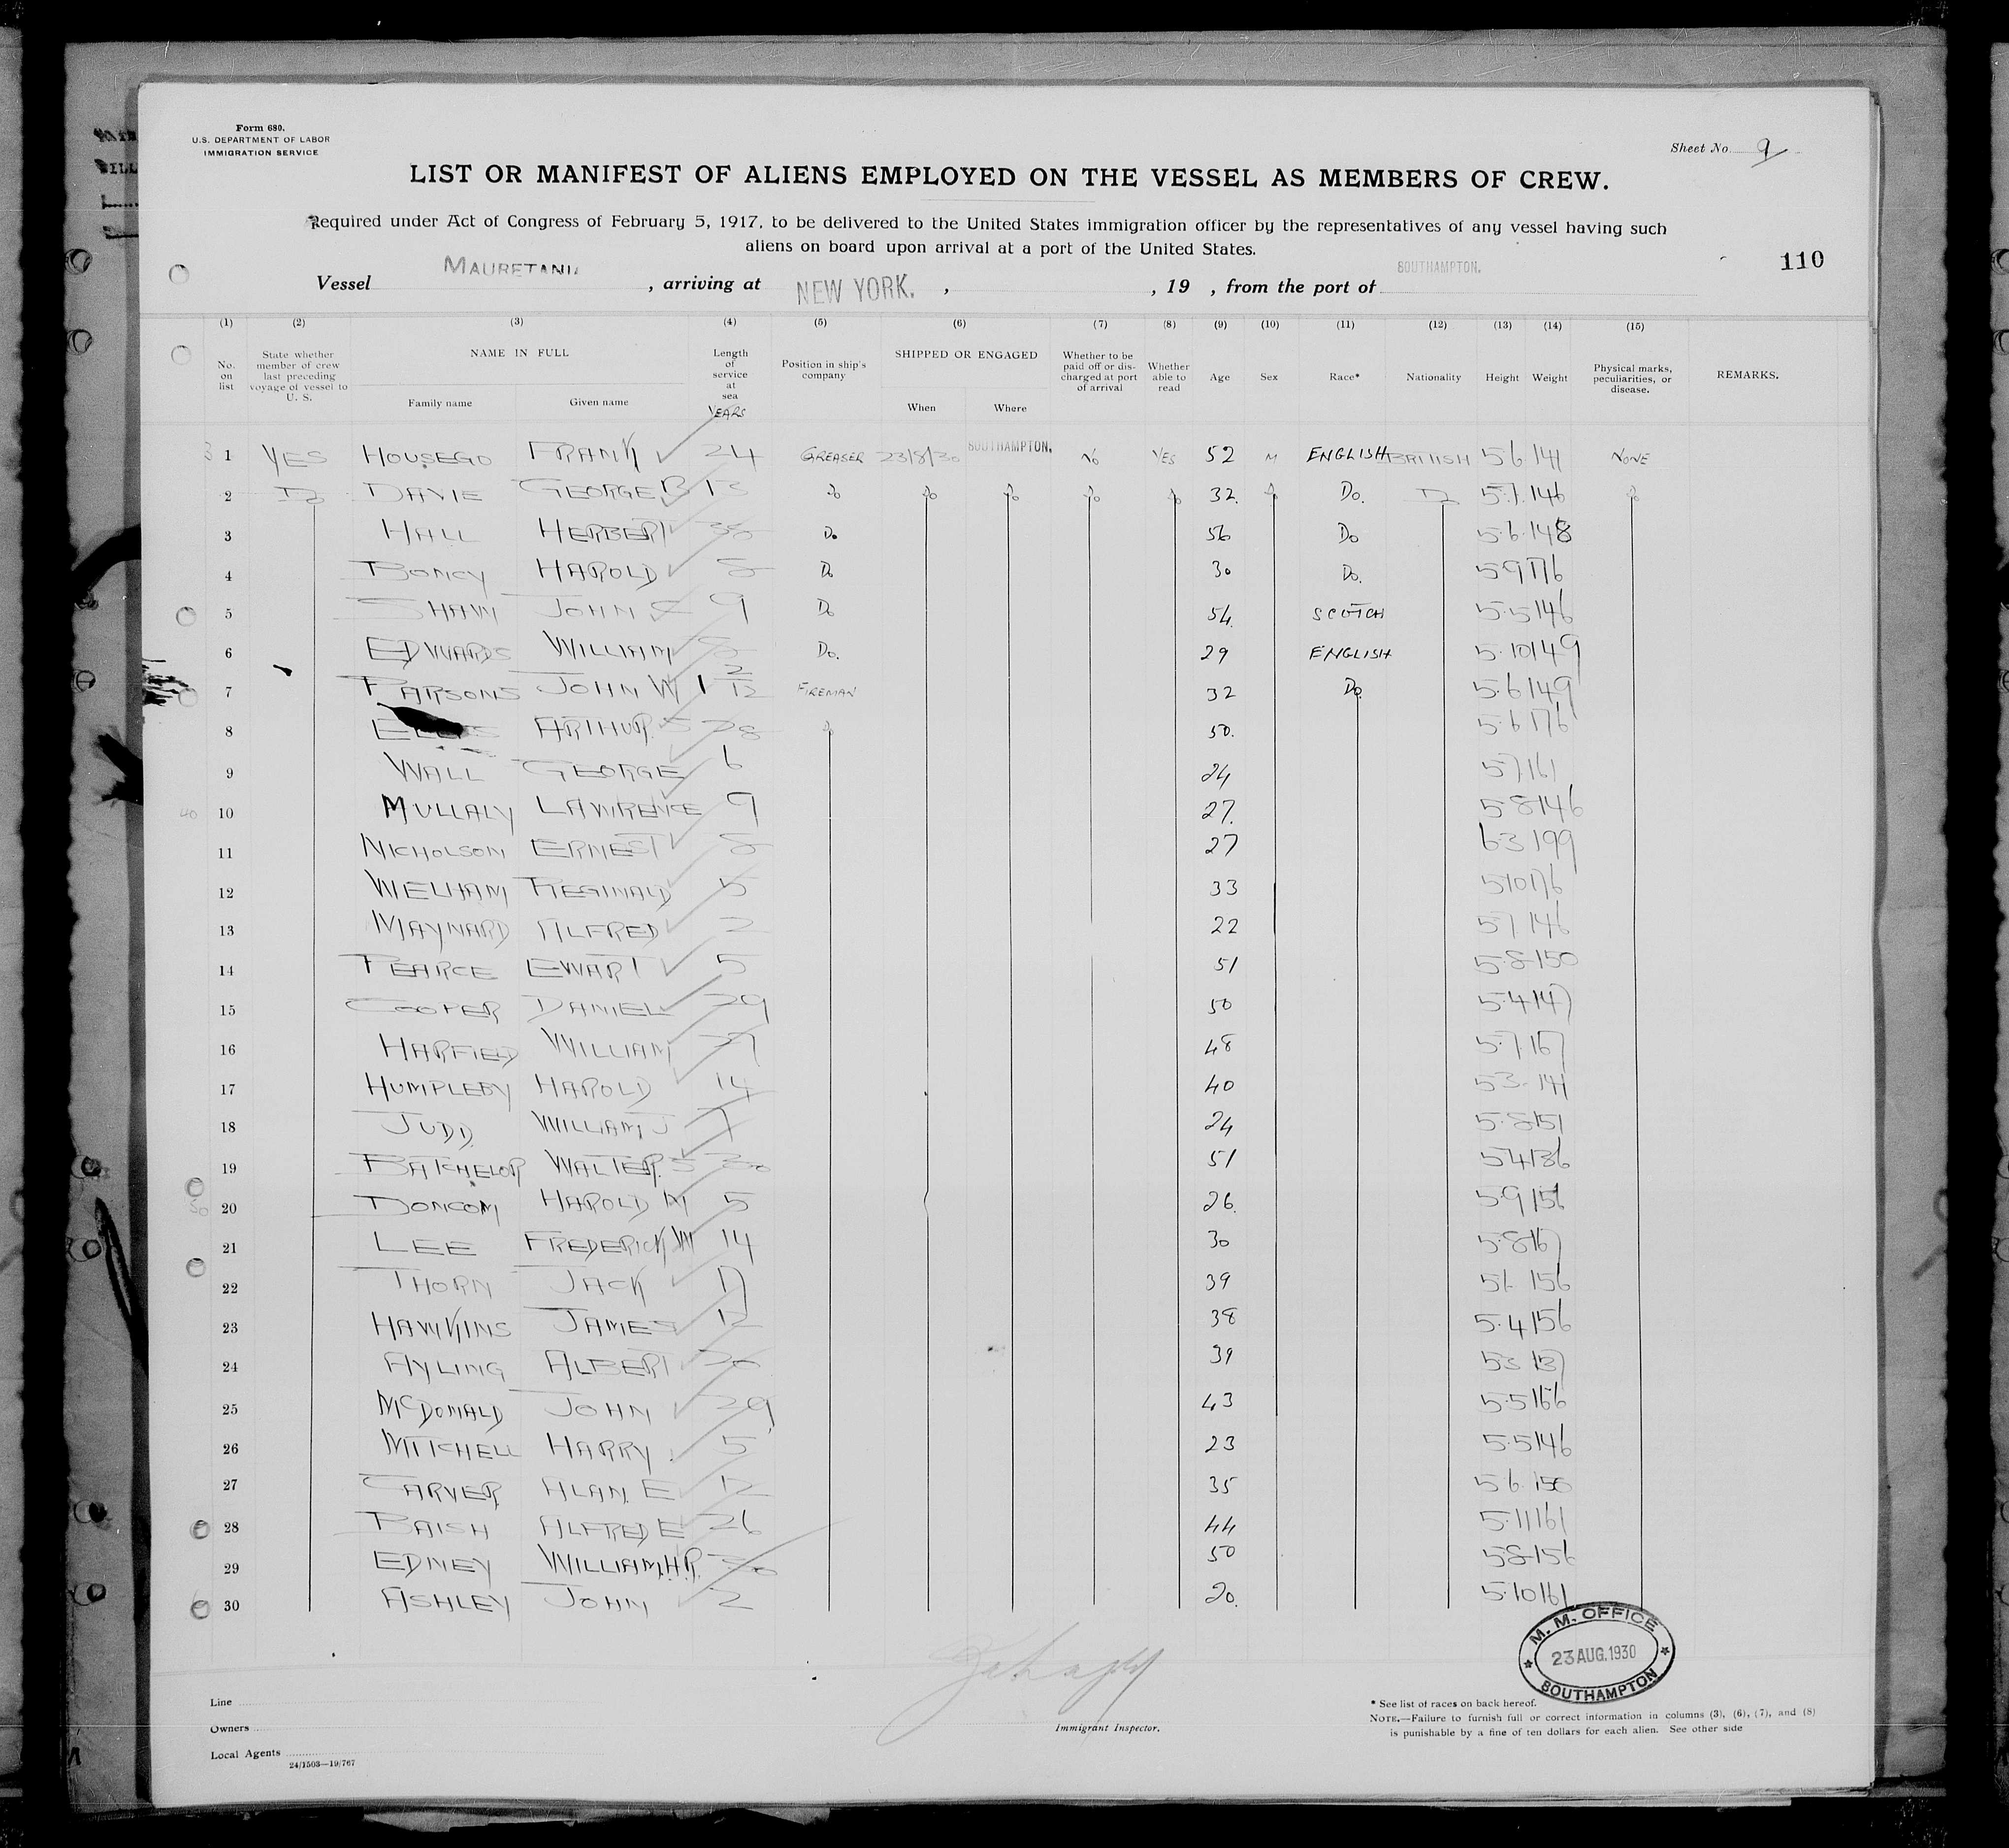 Form 680.
U.S. DEPARTMENT OF LABOR
IMMIGRATION SERVICE
Sheet No. 9
LIST OR MANIFEST OF ALIENS EMPLOYED ON THE VESSEL AS MEMBERS OF CREW.
Required under Act of Congress of February 5, 1917, to be delivered to the United States immigration officer by the representatives of any vessel having such
aliens on board upon arrival at a port of the United States.
110
Vessel MAURETANIA, arriving at NEW YORK. , , 19 , from the port of SOUTHAMPTON.
(1) (2) (3) (4) (5) (6) (7) (8) (9) (10) (11) (12) (13) (14) (15)
No. on list State whether member of crew last preceding voyage of vessel to U. S. NAME IN FULL Family name Given name Length of service at sea YEARS Position in ship's company SHIPPED OR ENGAGED When Where Whether to be paid off or discharged at port of arrival Whether able to read Age Sex Race* Nationality Height Weight Physical marks, peculiarities, or disease. REMARKS.
1 YES HOUSEGO FRANK 24 GREASER 23/8/30 SOUTHAMPTON. No YES 52 M ENGLISH BRITISH 5 6 141 NONE
2 Do DAVIE GEORGE B 13 Do Do Do Do Do 32. Do Do. Do 5.7. 146 Do
3 HALL HERBERT 38 Do 56 Do 5.6. 148
4 HAROLD 8 Do 30 Do. 5 9 176
5 SHAW JOHN 9 Do 54. SCOTCH 5.5 146
6 EDWARDS WILLIAM Do. 29 ENGLISH 5.10 149
7 PARSONS JOHN W 1 2/12 FIREMAN 32 Do. 5.6 149
8 ARTHUR S 28 Do 50. 5.6 176
9 WALL GEORGE 6 24 5 7 161
10 MULLALY LAWRENCE 9 27. 5 8 146
11 NICHOLSON ERNEST 8 27 6 3 199
12 WELHAM REGINALD 5 33 5 10 176
13 MAYNARD ALFRED 2 22 5 7 146
14 PEARCE EWART 5 51 5.8 150
15 COOPER DANIEL 29 50 5.4 147
16 HARFIELD WILLIAM 48 5.7. 167
17 HUMPLEBY HAROLD 14 40 5 3. 141
18 JUDD. WILLIAM J 7 24 5.8 151
19 BATCHELOR WALTER. S 30 51 5 4 136
20 DONCOM HAROLD W 5 26. 5.9 156
21 LEE FREDERICK W 14 30 5.8 167
22 THORN JACK 17 39 156
23 HAWKINS JAMES 12 38 5.4 156
24 AYLING ALBERT 20 39 5 3 137
25 McDONALD JOHN 29 43 5.5 166
26 MITCHELL HARRY 5 23 5.5 146
27 CARVER ALAN. E 12 35 5 6. 150
28 BAISH ALFRED E 26 44 5.11 161
29 EDNEY WILLIAM.H.R. 30 50 5 8 156
30 ASHLEY JOHN 2 20. 5.10 161
M. M. OFFICE
23 AUG. 1930
SOUTHAMPTON
Line
Owners
Local Agents
24/1503—19/767
Immigrant Inspector.
* See list of races on back hereof.
NOTE.—Failure to furnish full or correct information in columns (3), (6), (7), and (8)
is punishable by a fine of ten dollars for each alien. See other side